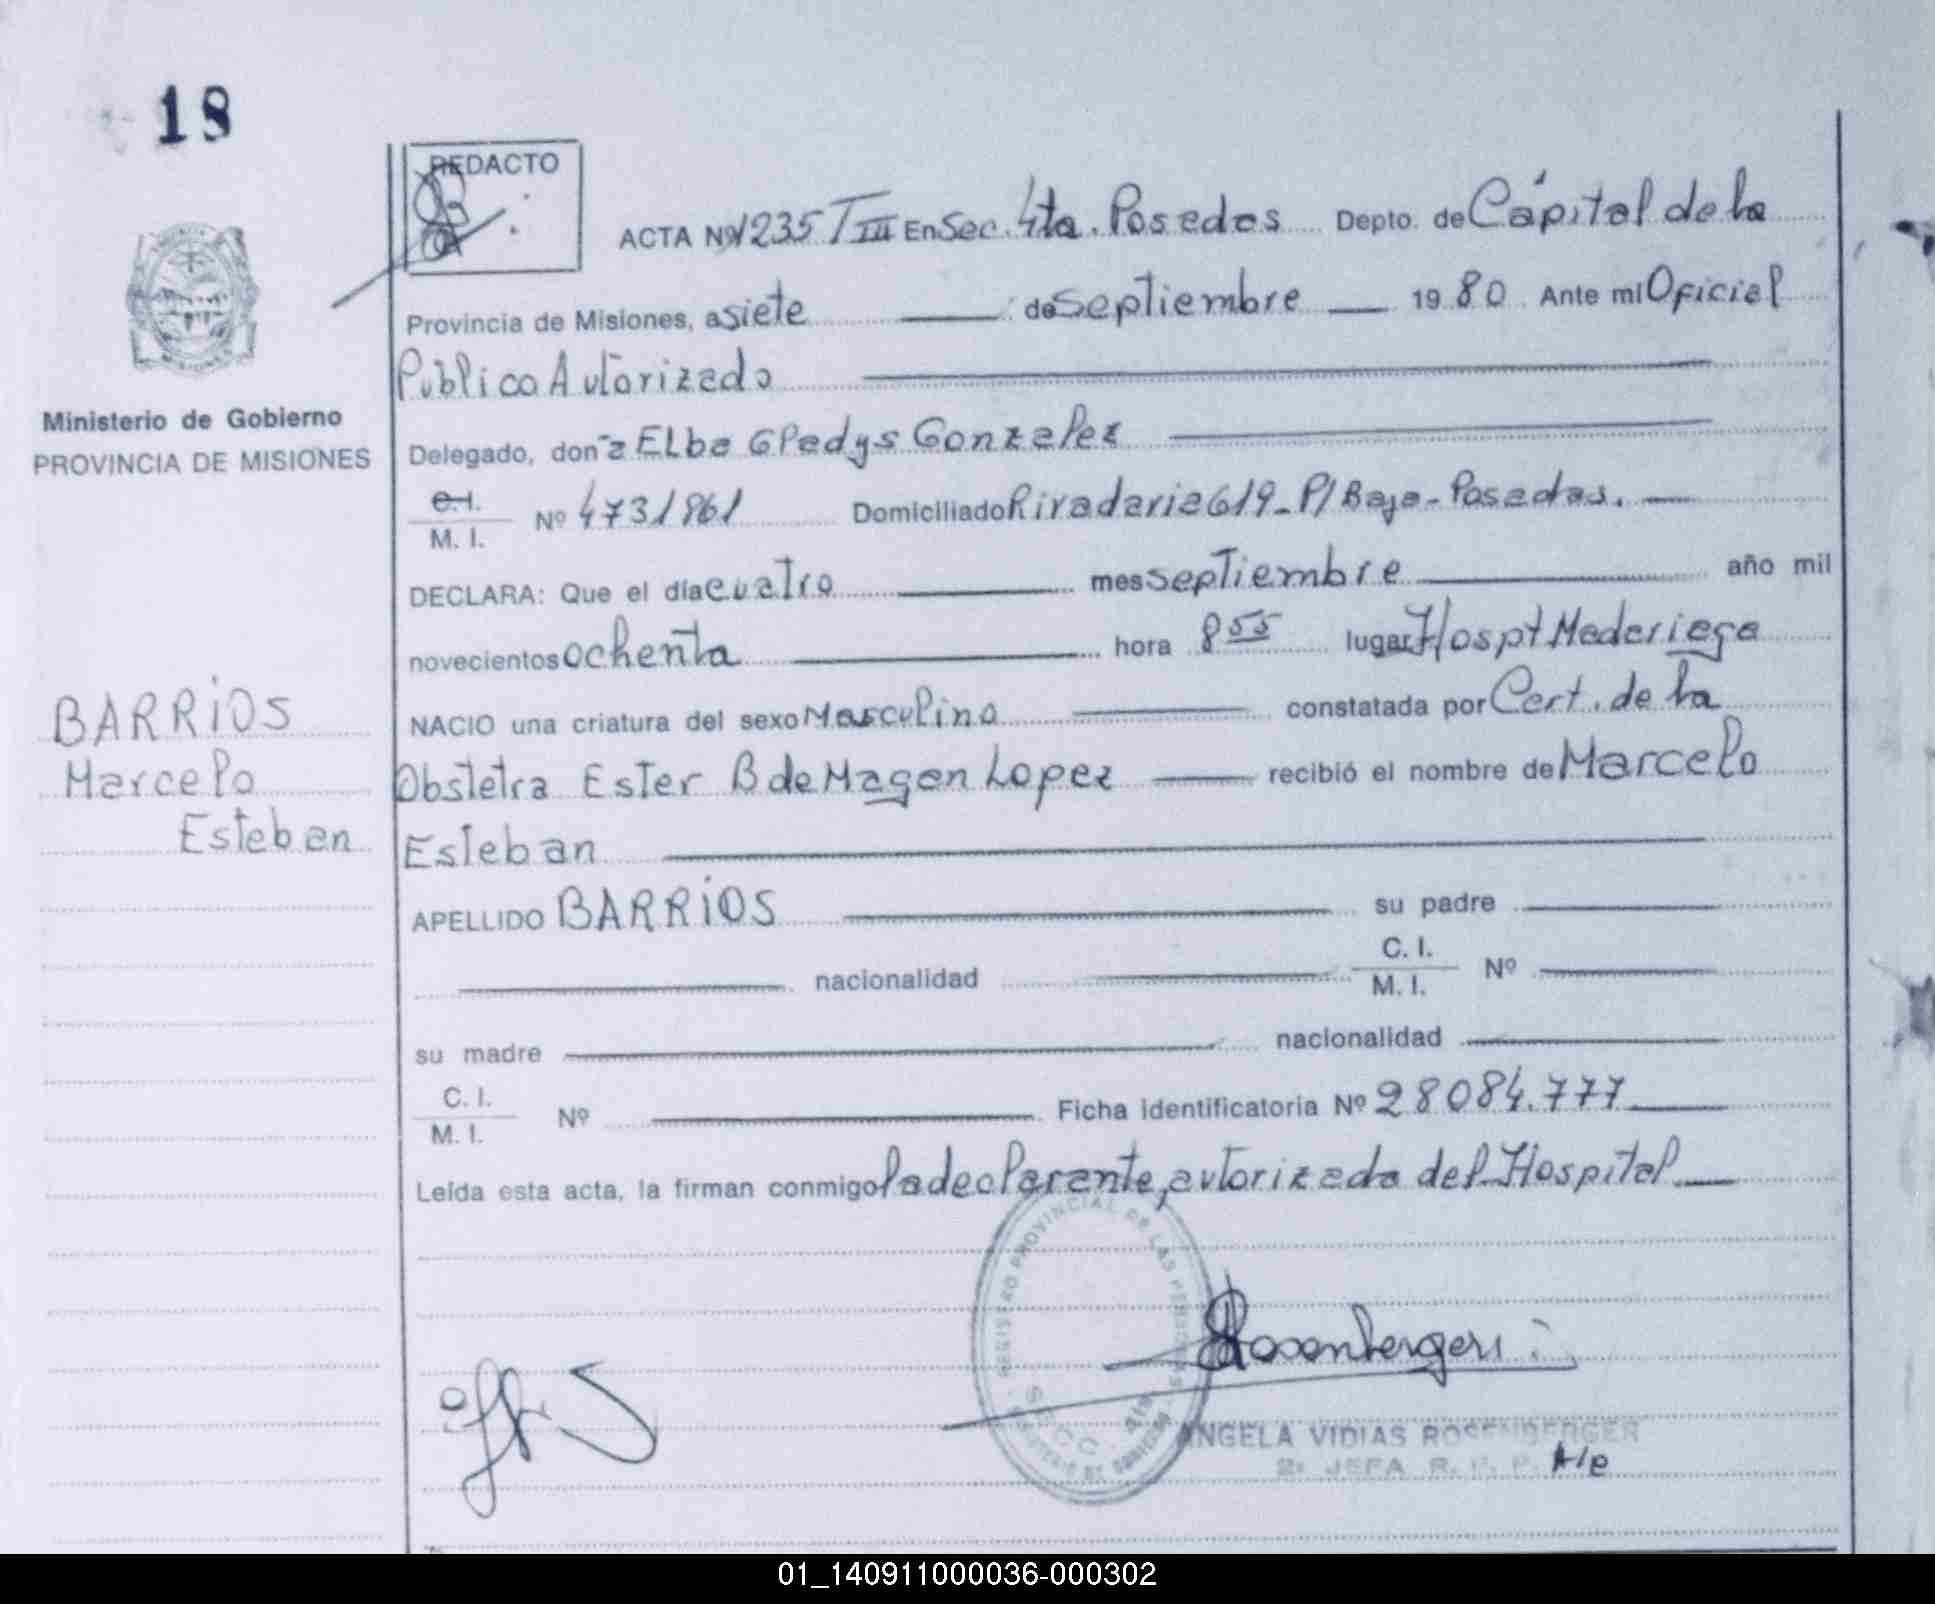 18
REDACTO
ACTA Nº 1235 T III En Sec. 4ta. Posadas Depto. de Cápital de la
Provincia de Misiones, a siete de Septiembre 19 80 Ante mi Oficial
Publico Autorizado
Ministerio de Gobierno
PROVINCIA DE MISIONES
Delegado, don~a ELba Gladys Gonzalez
C.I.
M. I. Nº 4731861 Domiciliado Rivadavia 619_ P/ Baja - Posadas.
DECLARA: Que el día cuatro mes septiembre año mil
novecientos ochenta hora 8 55 lugar Hospt Madariaga
BARRIOS
Marcelo
Esteban
NACIO una criatura del sexo Masculino constatada por Cert. de la
Obstetra Ester B de Magan Lopez recibió el nombre de Marcelo
Esteban
APELLIDO BARRIOS su padre
nacionalidad C. I.
M. I. Nº
su madre nacionalidad
C. I.
M. I. Nº Ficha identificatoria Nº 28084.777
Leída esta acta, la firman conmigo la declarante, autorizada del Hospital
REGISTRO PROVINCIAL DE LAS PERSONAS
Rosenberger
ANGELA VIDIAS ROSENBERGER
2ª JEFA R. P. P.
01_140911000036-000302